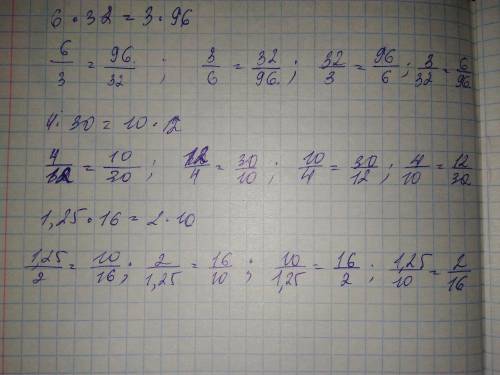 6 · 32 = 3 · 96
6/3 = 96/32 ; 3/6 = 32/96 ; 32/3 = 96/6 ; 3/32 = 6/96
4 · 30 = 10 · 12
4/12 = 10/30 ; 12/4 = 30/10 ; 10/4 = 30/12 ; 4/10 = 12/30
1,25 · 16 = 2 · 10
1,25/2 = 10/16 ; 2/1,25 = 16/10 ; 10/1,25 = 16/2 ; 1,25/10 = 2/16